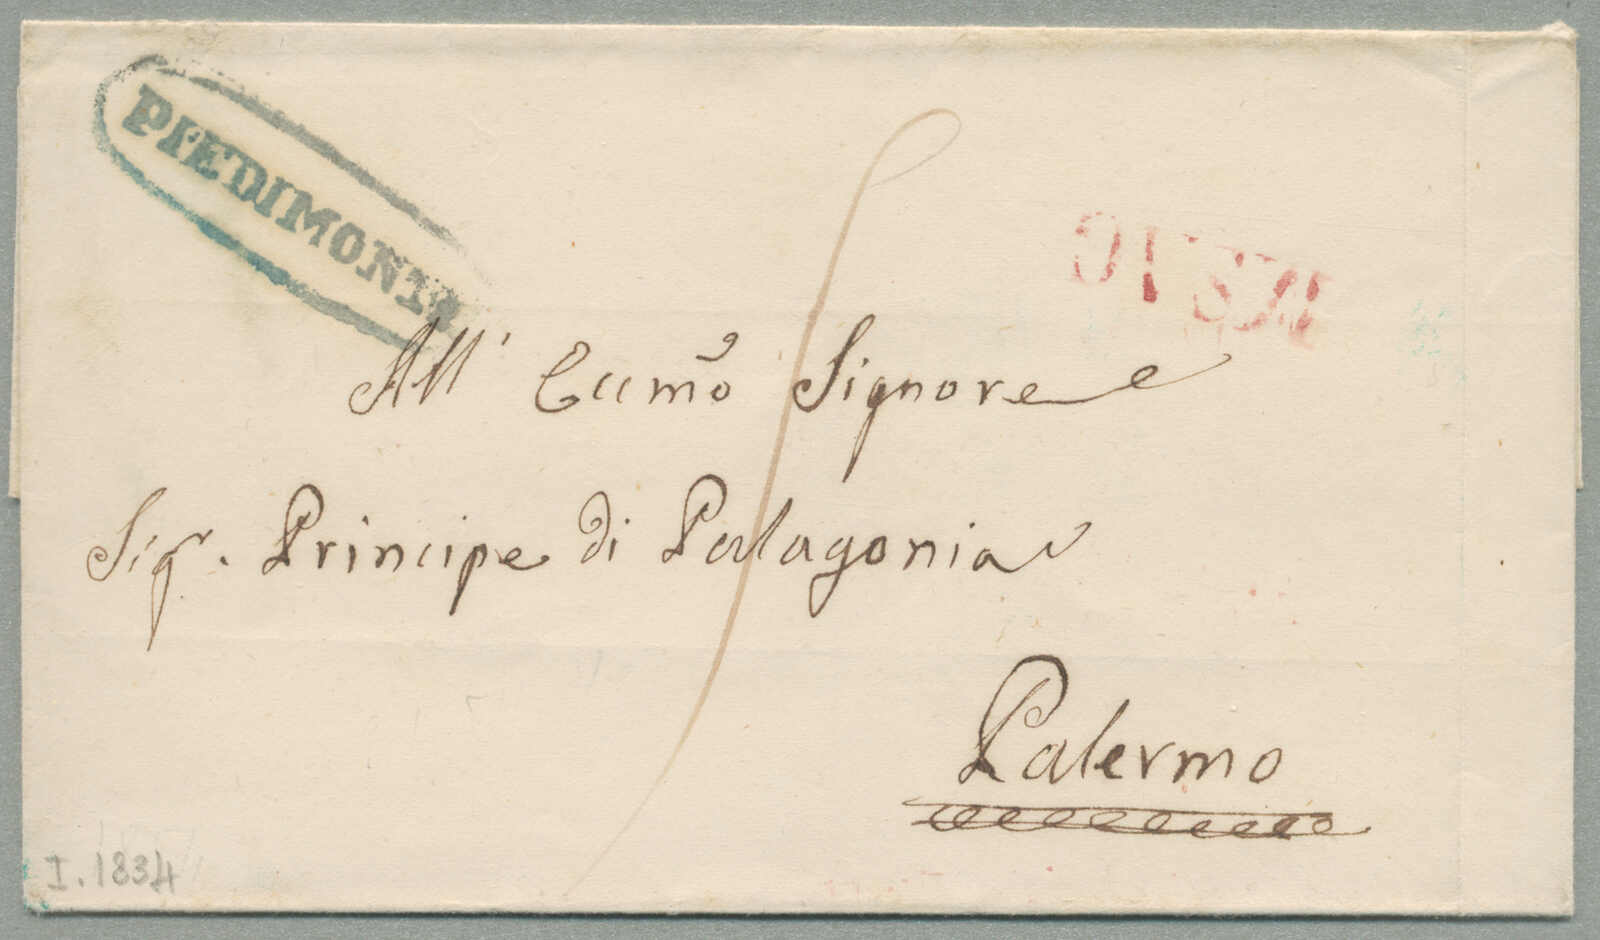 PIEDIMONTE
All' Ecc.mo Signore
Sigr. Principe di Palagonia
Palermo
I. 1834